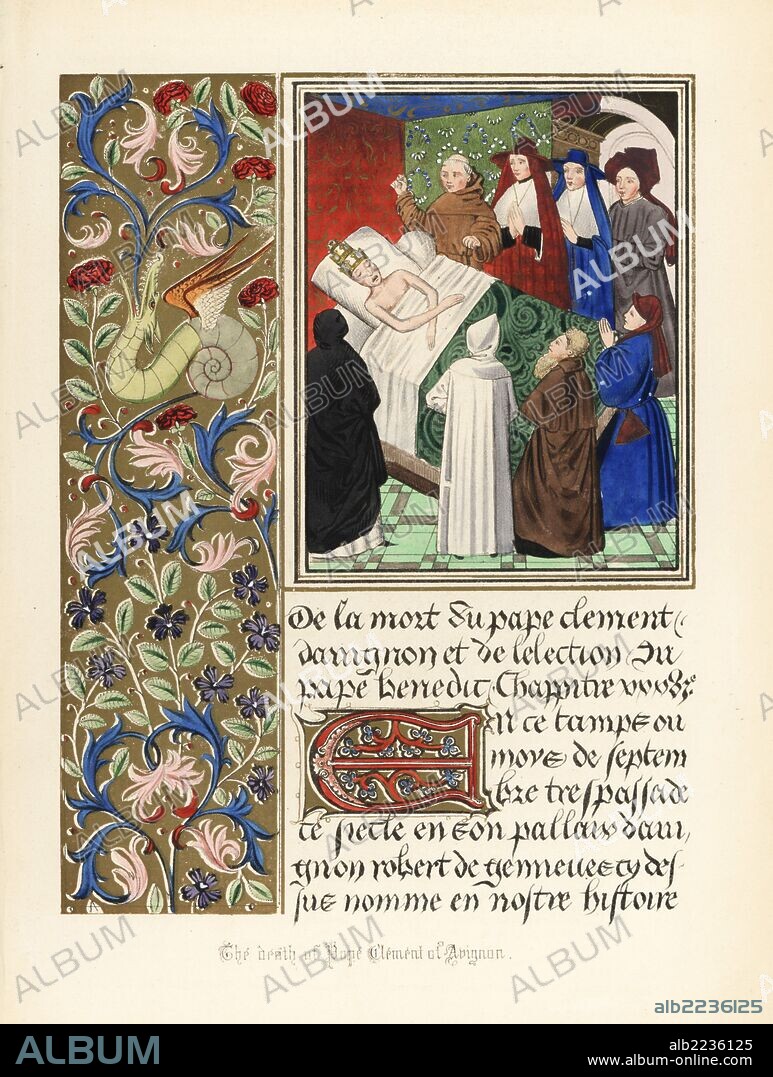 De la mort du pape clement
davignon et de lelection du
pape benedic Chappitre
En ce tamps ou
moys de septem
bre trespassa de
ce siecle en son pallays davi
gnon robert de genneues cy des
sus nomme en nostre histoire
The death of Pope Clement of Avignon.
alb2236125
ALBUM
alb2236125
www.album-online.com